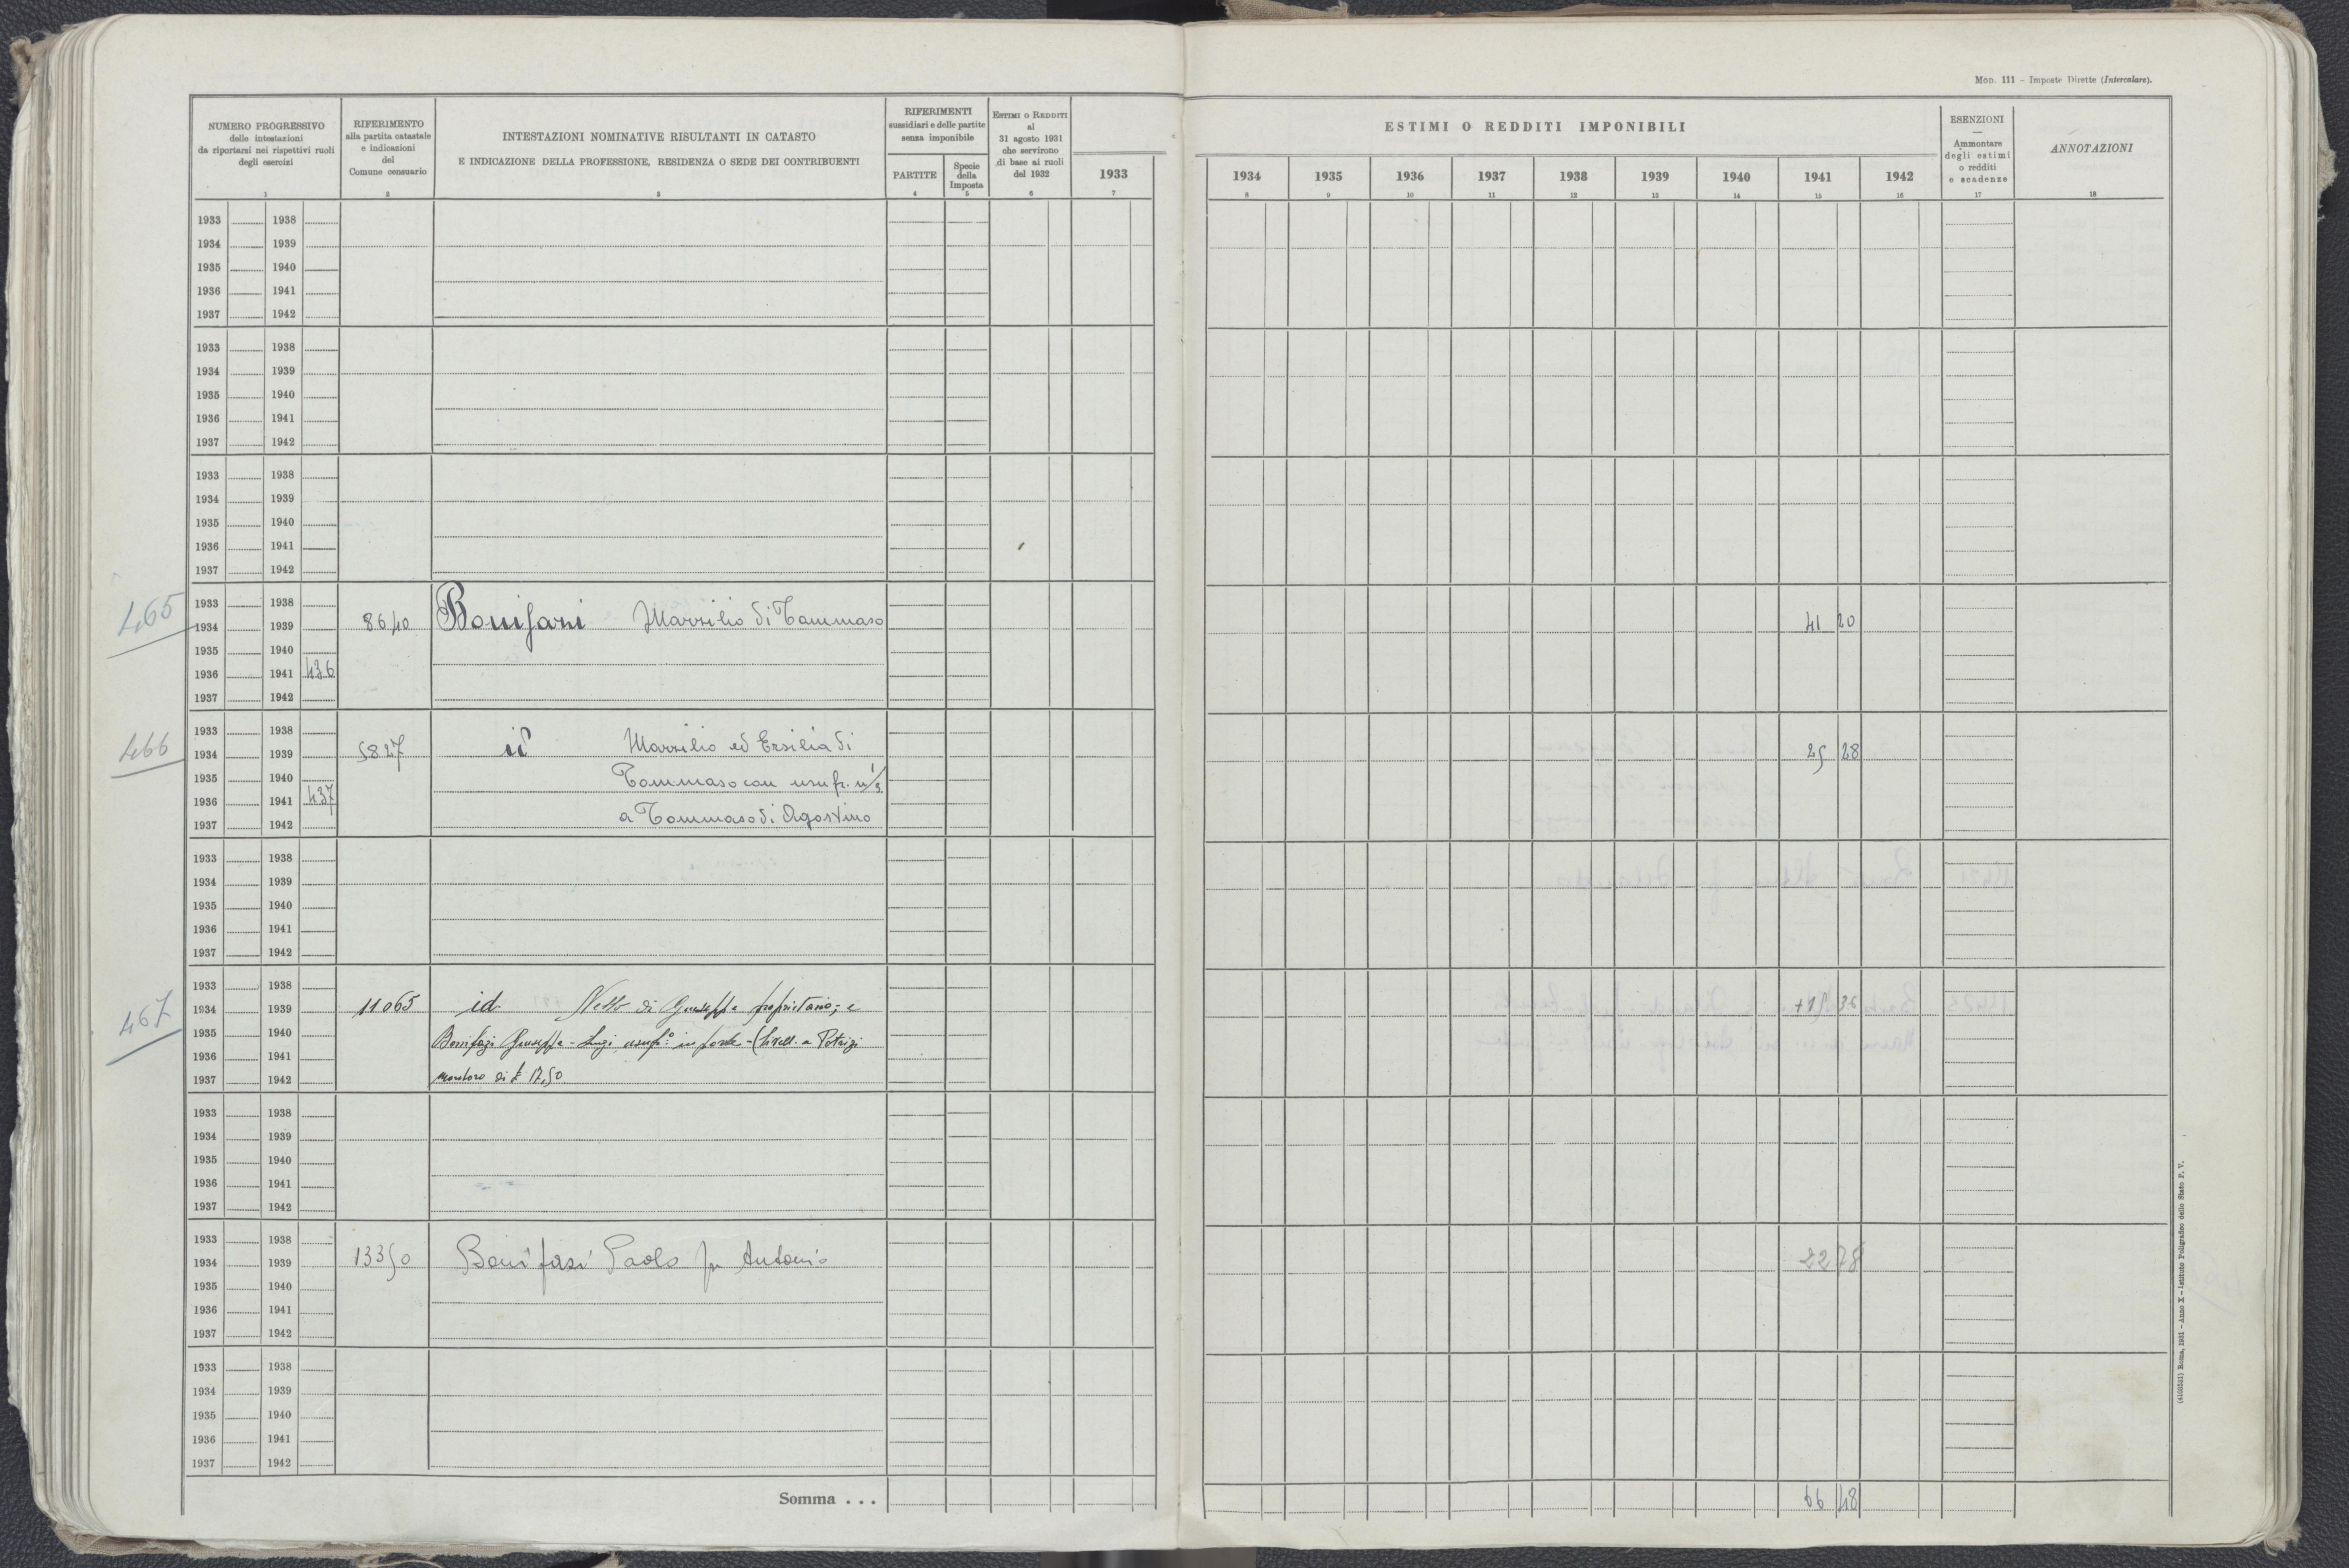 Mod. 111 - Imposte Dirette (Intercalare).
NUMERO PROGRESSIVO
delle intestazioni
da riportarsi nei rispettivi ruoli
degli esercizi
1
RIFERIMENTO
alla partita catastale
e indicazioni
del
Comune censuario
2
INTESTAZIONI NOMINATIVE RISULTANTI IN CATASTO
E INDICAZIONE DELLA PROFESSIONE, RESIDENZA O SEDE DEI CONTRIBUENTI
3
RIFERIMENTI
sussidiari e delle partite
senza imponibile
PARTITE
4
Specie
della
Imposta
5
ESTIMI O REDDITI
al
31 agosto 1931
che servirono
di base ai ruoli
del 1932
6
1933
7
ESTIMI O REDDITI IMPONIBILI
1934 1935 1936 1937 1938 1939 1940 1941 1942
8 9 10 11 12 13 14 15 16
ESENZIONI
—
Ammontare
degli estimi
o redditi
e scadenze
17
ANNOTAZIONI
18
1933 1938
1934 1939
1935 1940
1936 1941
1937 1942
1933 1938
1934 1939
1935 1940
1936 1941
1937 1942
1933 1938
1934 1939
1935 1940
1936 1941
1937 1942
465
1933 1938
1934 1939 8640 Bonifazi Marzilio di Tommaso 41 20
1935 1940
1936 1941 436
1937 1942
466
1933 1938
1934 1939 5827 id Marzilio ed Ersilia di 25 28
1935 1940 Tommaso con usufr.
1936 1941 437
1937 1942 a Tommaso di Agostino
1933 1938
1934 1939
1935 1940
1936 1941
1937 1942
467
1933 1938
1934 1939 11065 id. Nello di Giuseppe proprietario; e +15 36
1935 1940 Bonifazi Giuseppe - Luigi usuf.º in parte - (livell. a Patrizi
1936 1941
1937 1942 Montoro di £ 17,50
1933 1938
1934 1939
1935 1940
1936 1941
1937 1942
1933 1938
1934 1939 13350 Bonifazi Paolo fu Antonio 22 78
1935 1940
1936 1941
1937 1942
1933 1938
1934 1939
1935 1940
1936 1941
1937 1942
Somma . . . 66 48
(4103531) Roma, 1931 - Anno X - Istituto Poligrafico dello Stato P. V.